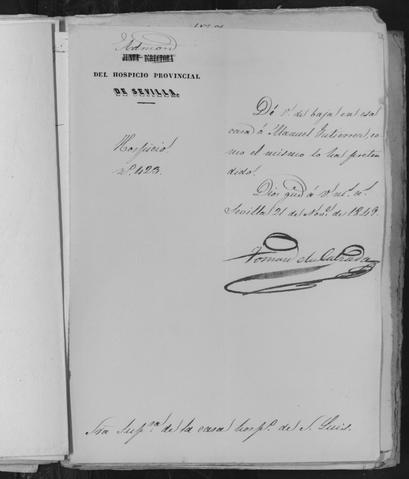 Admon
JUNTA DIRECTORA
DEL HOSPICIO PROVINCIAL
DE SEVILLA.
Hospicio
Nº. 423.
Dé V. de baja en esa
casa á Manuel Gutierrez, co
mo el mismo lo ha preten
dido.
Dios gue á V. ms. as.
Sevilla 21 de Nove. de 1849.
Sra Supra. de la casa hospo. de S. Luis.